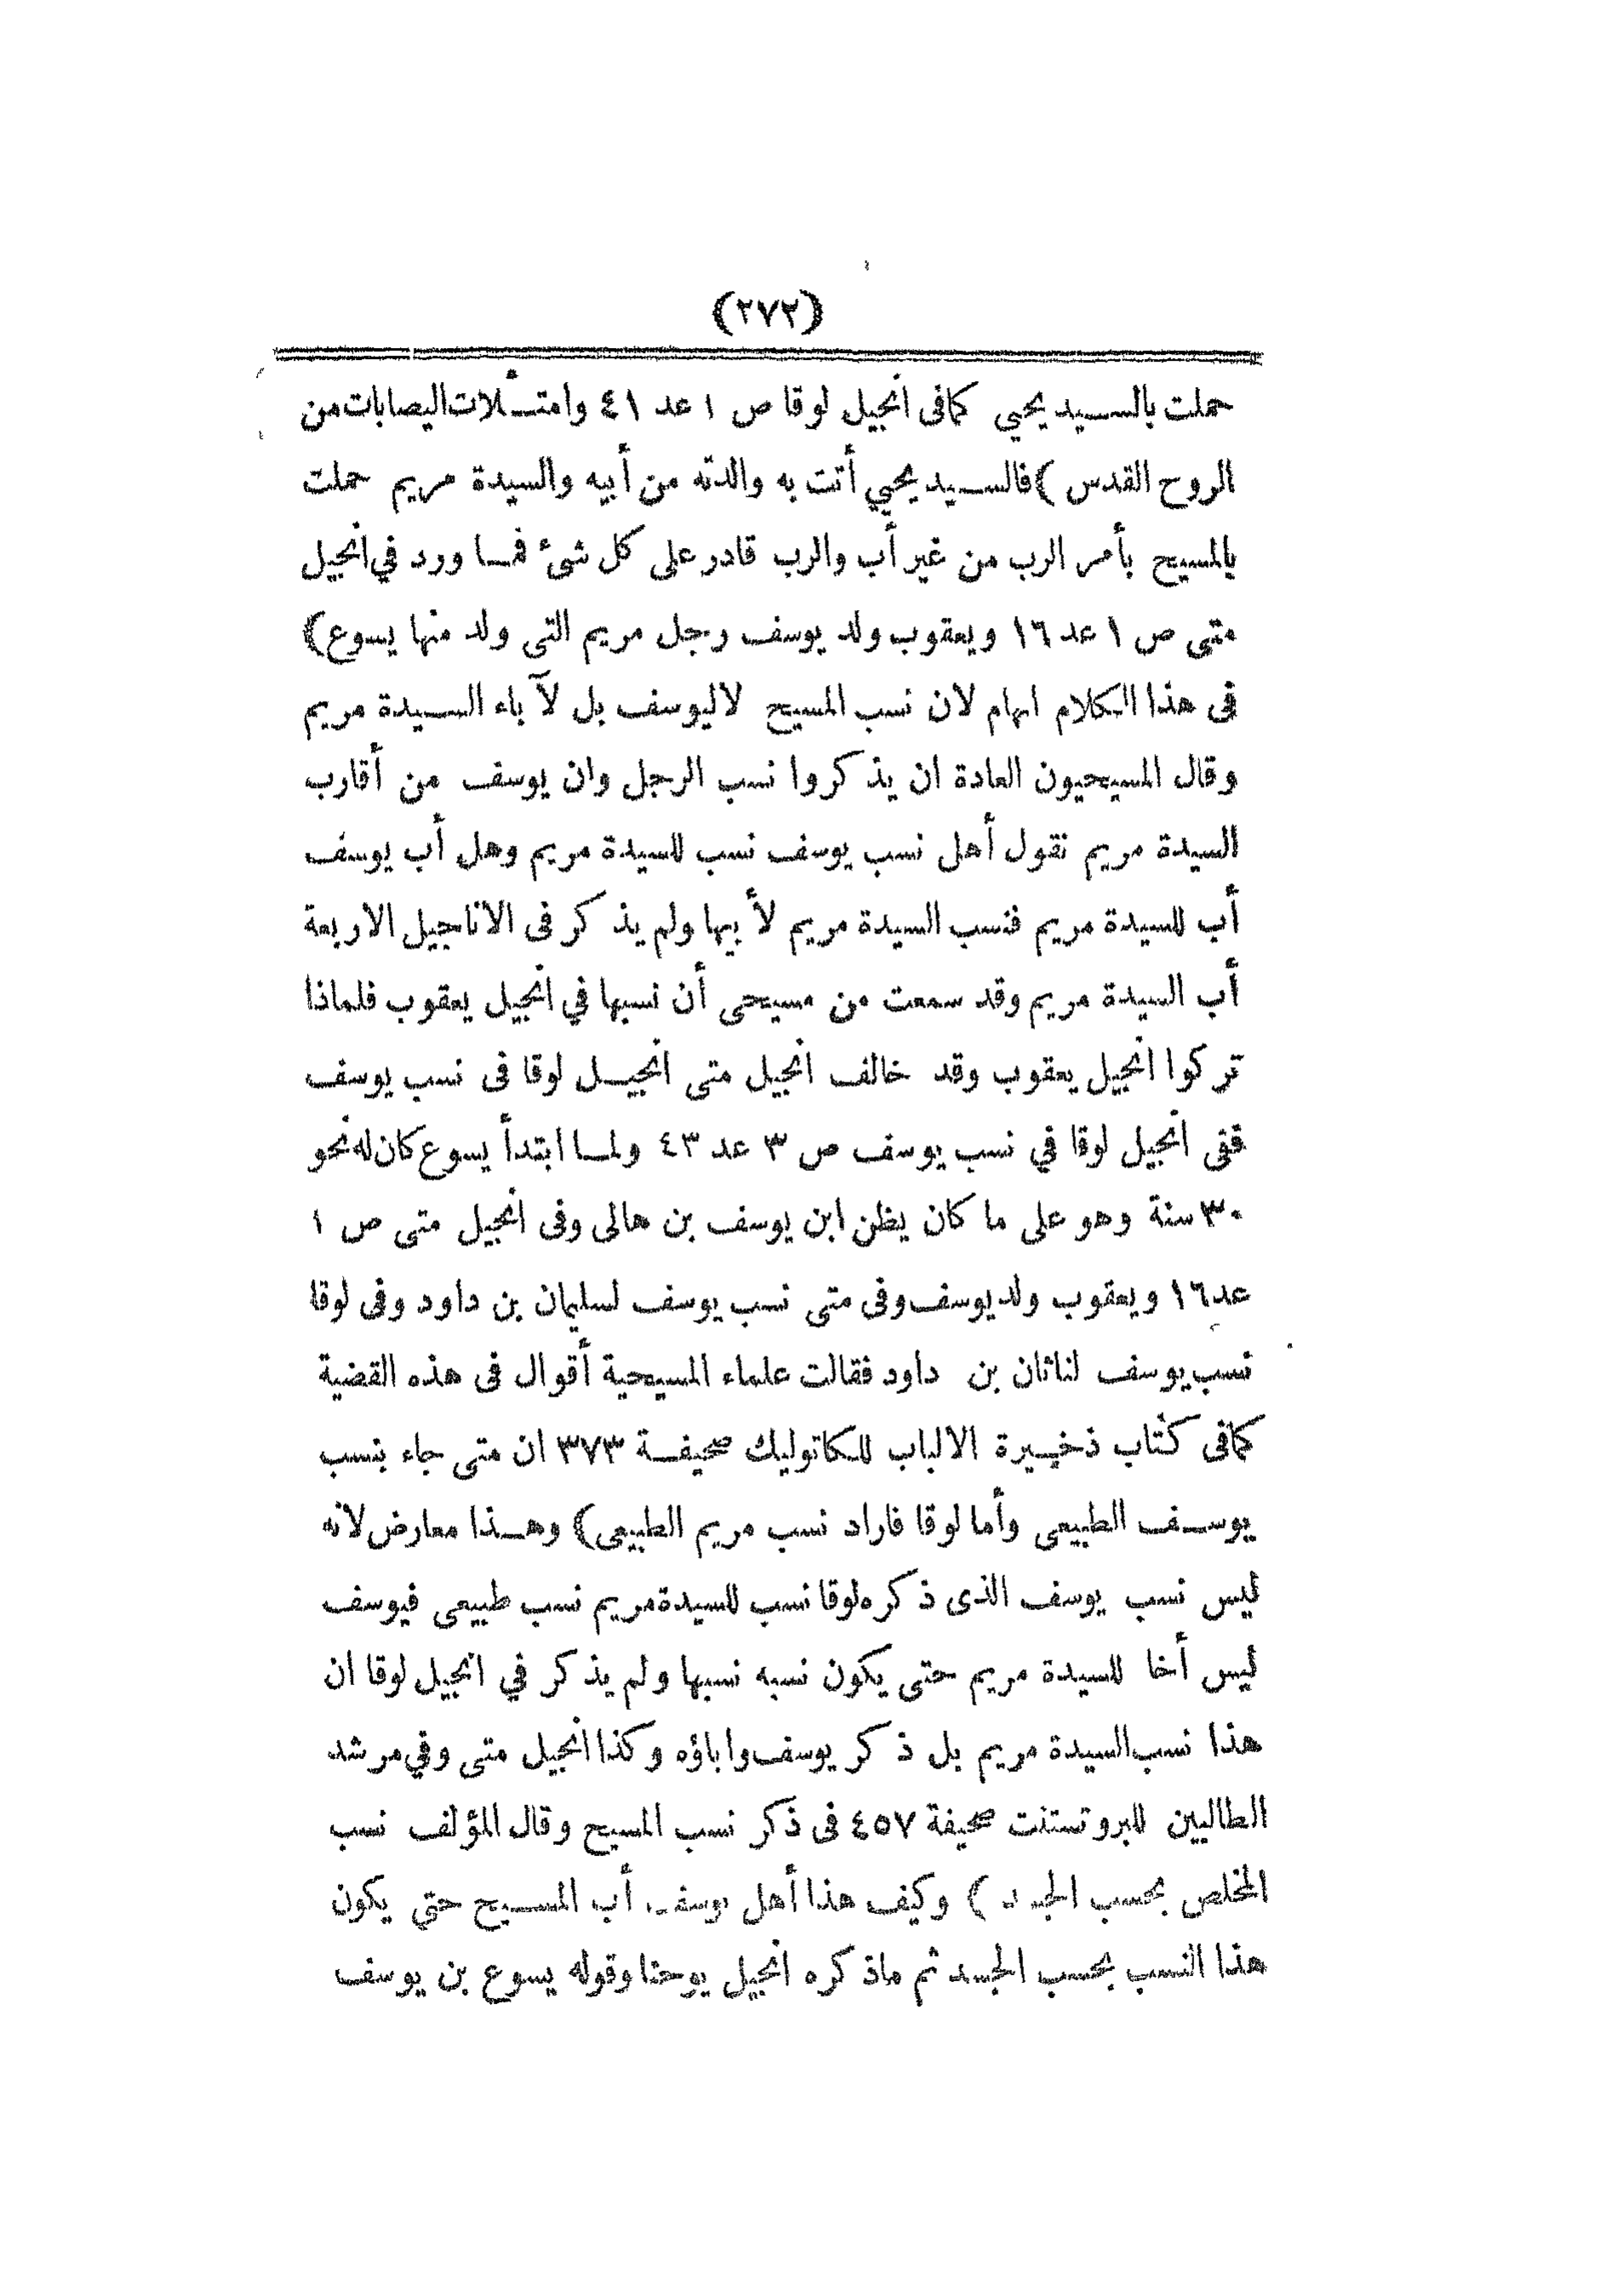 (٢٧٢)
حملت بالسيد يحيي كمافى انجيل لوقا ص ١ عد ٤١ وامتـلات اليصابات من
الروح القدس ) فالسيد يحيي أتت به والدته من أبيه والسيدة مريم حملت
بالمسيح بأمر الرب من غير أب والرب قادر على كل شئ فمـا ورد في انجيل
متى ص ١ عد ١٦ ويعقوب ولد يوسف رجل مريم التى ولد منها يسوع )
فى هذا الكلام ابهام لان نسب المسيح لاليوسف بل لآ باء السيدة مريم
وقال المسيحيون العادة ان يذكروا نسب الرجل وان يوسف من أقارب
السيدة مريم نقول أهل نسب يوسف نسب للسيدة مريم وهل أب يوسف
أب للسيدة مريم فنسب السيدة مريم لأ بيها ولم يذكر فى الاناجيل الاربعة
أب السيدة مريم وقد سمعت من مسيحى أن نسبها في انجيل يعقوب فلماذا
تركوا انجيل يعقوب وقد خالف انجيل متى انجيل لوقا فى نسب يوسف
ففى انجيل لوقا في نسب يوسف ص ٣ عد ٤٣ ولما ابتدأ يسوع كان له نحو
٣٠ سنة وهو على ما كان يظن ابن يوسف بن هالى وفى انجيل متى ص ١
عد ١٦ ويعقوب ولد يوسف وفى متى نسب يوسف لسليمان بن داود وفى لوقا
نسب يوسف لناثان بن داود فقالت علماء المسيحية أقوال فى هذه القضية
كمافى كتاب ذخيرة الالباب للكاتوليك صحيفة ٣٧٣ ان متى جاء بنسب
يوسف الطبيعى وأما لوقا فاراد نسب مريم الطبيعى ) وهذا معارض لانه
ليس نسب يوسف الذى ذكره لوقا نسب للسيدة مريم نسب طبيعى فيوسف
ليس أخا للسيدة مريم حتى يكون نسبه نسبها ولم يذكر في انجيل لوقا ان
هذا نسب السيدة مريم بل ذكر يوسف واباؤه وكذا انجيل متى وفي مرشد
الطالبين للبروتستنت صحيفة ٤٥٧ فى ذكر نسب المسيح وقال المؤلف نسب
المخلص بحسب الجسد ) وكيف هذا أهل يوسف أب المسيح حتي يكون
هذا النسب بحسب الجسد ثم ماذكره انجيل يوحنا وقوله يسوع بن يوسف